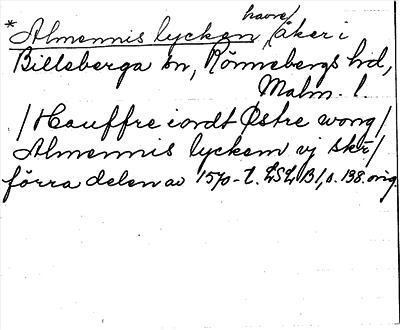 * Almennis lycken havre/ åker i
Billeberga sn, Rönnebergs hd,
Malm. l.
/Hauffre iordt Østre wong/
Almennis lyckem vj skr/
förra delen av 1570-t. LSLB1, s. 138. orig.